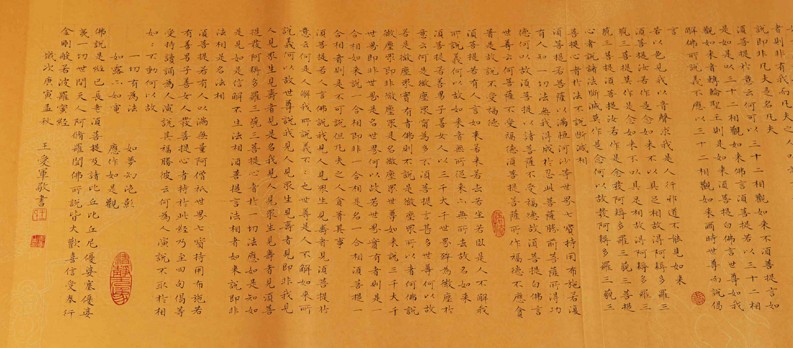 須菩提於意云何可以三十二相觀如來不須菩提言如
是如是以三十二相觀如來佛言須菩提若以三十二相
觀如來者轉輪聖王則是如來須菩提白佛言世尊如我
解佛所說義不應以三十二相觀如來爾時世尊而說偈
言
若以色見我以音聲求我是人行邪道不能見如來
須菩提汝若作是念如來不以具足相故得阿耨多羅三
藐三菩提須菩提莫作是念如來不以具足相故得阿耨多羅三
藐三菩提須菩提汝若作是念發阿耨多羅三藐三菩提
心者說諸法斷滅莫作是念何以故發阿耨多羅三藐三
菩提心者於法不說斷滅相
須菩提若菩薩以滿恒河沙等世界七寶持用布施若復
有人知一切法無我得成於忍此菩薩勝前菩薩所得功
德何以故須菩提以諸菩薩不受福德故須菩提白佛言
世尊云何菩薩不受福德須菩提菩薩所作福德不應貪
著是故說不受福德
須菩提若有人言如來若來若去若坐若臥是人不解我
所說義何以故如來者無所從來亦無所去故名如來
須菩提若善男子善女人以三千大千世界碎為微塵於
意云何是微塵眾寧為多不須菩提言甚多世尊何以故
若是微塵眾實有者佛則不說是微塵眾所以者何佛說
微塵眾則非微塵眾是名微塵眾世尊如來所說三千大千
世界則非世界是名世界何以故若世界實有者則是一
合相如來說一合相則非一合相是名一合相須菩提一
合相者則是不可說但凡夫之人貪著其事
須菩提若人言佛說我見人見眾生見壽者見須菩提於
意云何是人解我所說義不不也世尊是人不解如來所
說義何以故世尊說我見人見眾生見壽者見即非我見
人見眾生見壽者見是名我見人見眾生見壽者見須菩
提發阿耨多羅三藐三菩提心者於一切法應如是知如
是見如是信解不生法相須菩提所言法相者如來說即非
法相是名法相
須菩提若有人以滿無量阿僧祇世界七寶持用布施若
有善男子善女人發菩提心者持於此經乃至四句偈等
受持讀誦為人演說其福勝彼云何為人演說不取於相
如如不動何以故
一切有為法如夢幻泡影
如露亦如電應作如是觀
佛說是經已長老須菩提及諸比丘比丘尼優婆塞優婆
夷一切世間天人阿脩羅聞佛所說皆大歡喜信受奉行
金剛般若波羅蜜經
歲次庚寅孟秋王愛軍敬書